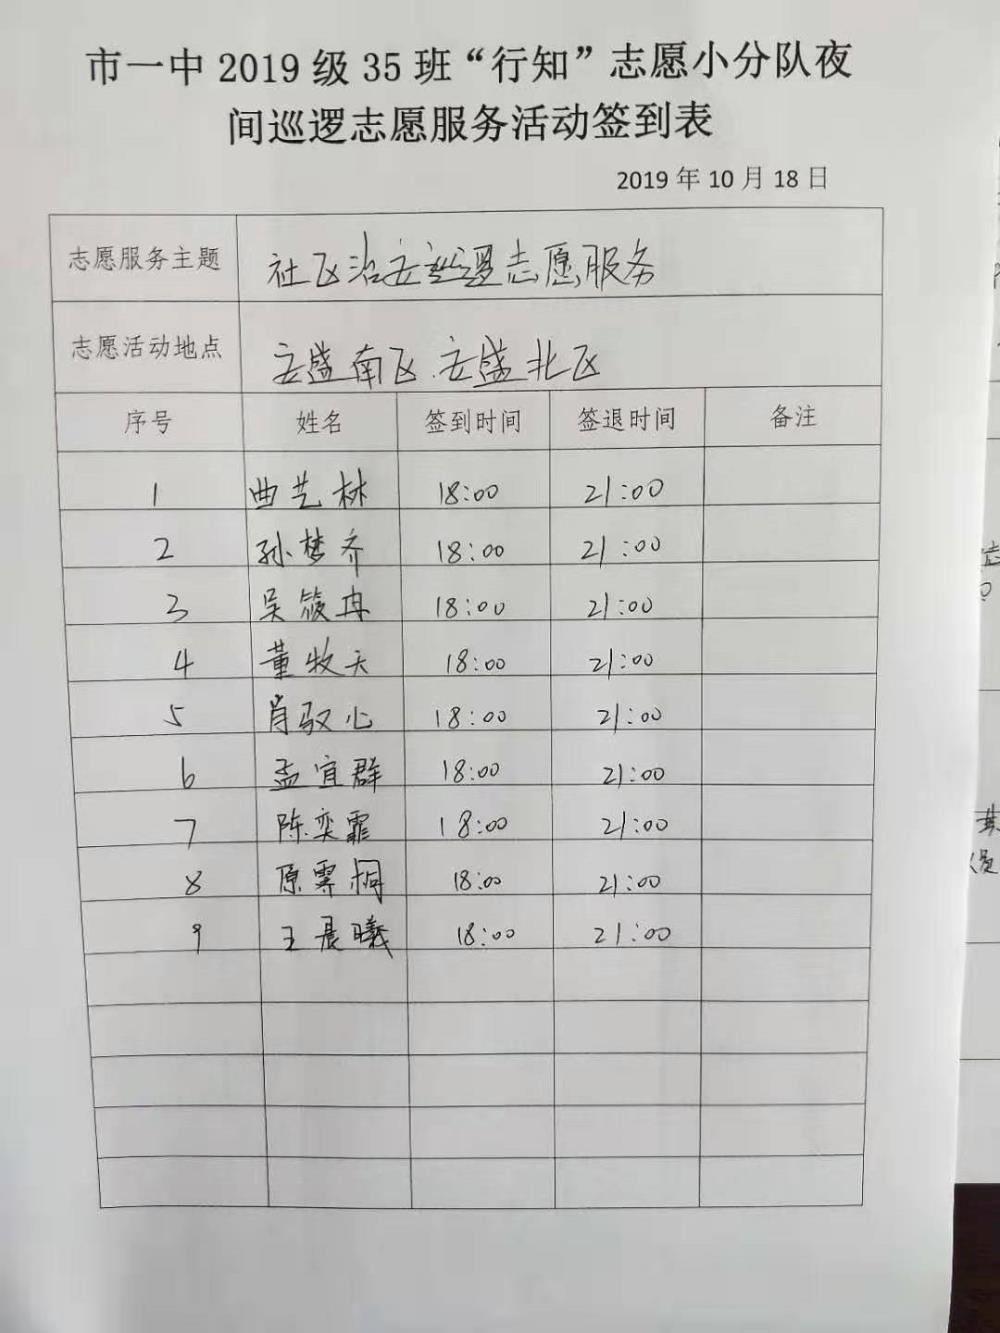 市一中2019级35班“行知”志愿小分队夜
间巡逻志愿服务活动签到表
2019年10月18日
志愿服务主题 社区治安巡逻志愿服务
志愿活动地点 安盛南区.安盛北区
序号 姓名 签到时间 签退时间 备注
1 曲艺林 18:00 21:00
2 孙梦齐 18:00 21:00
3 吴筱冉 18:00 21:00
4 董牧天 18:00 21:00
5 肖驭心 18:00 21:00
6 孟宜群 18:00 21:00
7 陈奕霏 18:00 21:00
8 原雩桐 18:00 21:00
9 王晨曦 18:00 21:00
志